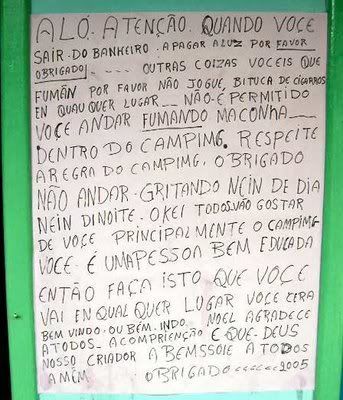 ALÓ. ATENÇÃO. QUANDO VOCE
SAIR. DO BANHEIRO. APAGAR A LUZ POR FAVOR
OBRIGADO. . . . . OUTRAS COIZAS VOCEIS QUE
FUMÃN POR FAVOR NÃO JOGUE. BITUCA DE CIGARROS
EN QUAU QUER LUGAR __ NÃO É PERMITIDO
VOCE ANDAR FUMANDO MACONHA___
DENTRO DO CAMPIMG. RESPEITE
A REGRA DO CAMPIMG. OBRIGADO
NÃO ANDAR. GRITANDO NEIN DE DIA
NEIN DI NOITE. OKEI TODOS. VÃO GOSTAR
DE VOÇE PRINCIPALMENTE O CAMPIMG
VOCE. É UMA PESSOA BEM EDUCADA
ENTÃO FAÇA ISTO QUE VOCE
VAI EN QUAL QUER LUGAR VOCE CERA
BEM VINDO. OU BÉM. INDO. NOEL AGRADECE
A TODOS. A COMPRIENÇÃO E QUE. DEUS
NOSSO CRIADOR ABEMSSOIE A TODOS
AMÉM. OBRIGADO ...... 2005